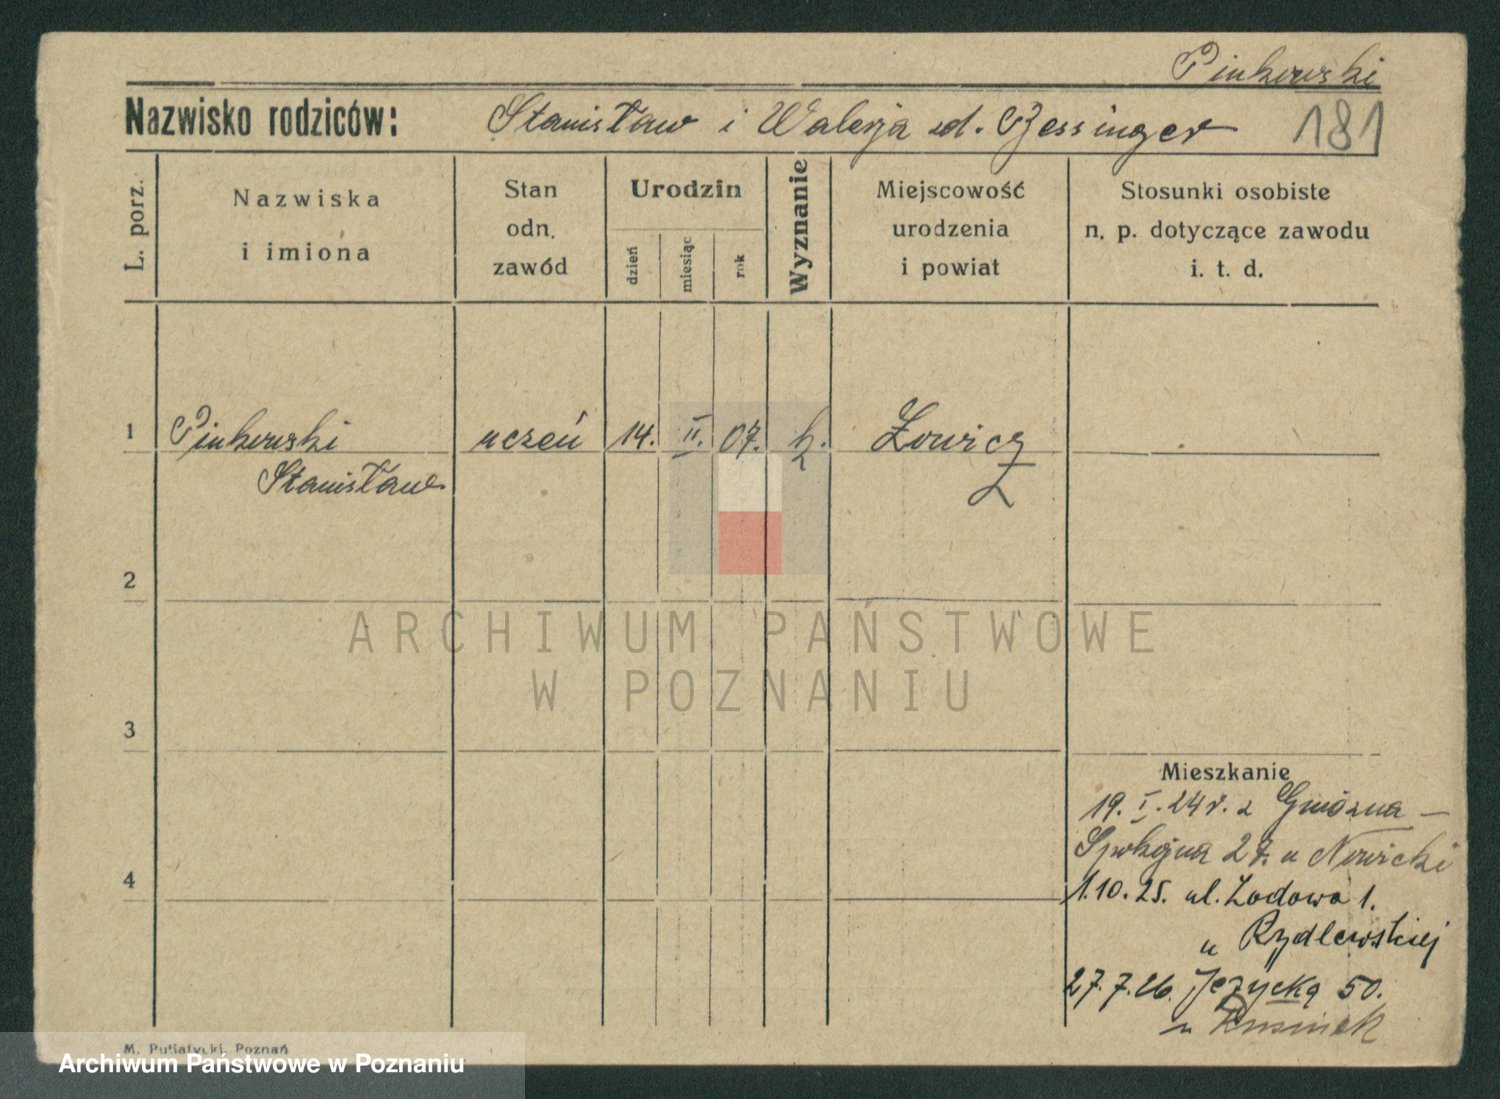 Pinkowski
Nazwisko rodziców: Stanisław i Walerja zd. Gessinger 181
L. porz.
Nazwiska
i imiona
Stan
odn.
zawód
Urodzin
dzień
miesiąc
rok
Wyznanie
Miejscowość
urodzenia
i powiat
Stosunki osobiste
n. p. dotyczące zawodu
i. t. d.
1 Pinkowski uczeń 14. II. 07. k. Łowicz
Stanisław
2
ARCHIWUM PAŃSTWOWE
W POZNANIU
3
Mieszkanie
19. I. 24 r. z
Spokojna 27. u Nowicki
4
1.10.25. ul. Lodowa 1.
u Rydlewskiej
27.7.26. Jeżycka 50.
u
M. Putiatycki, Poznań
Archiwum Państwowe w Poznaniu